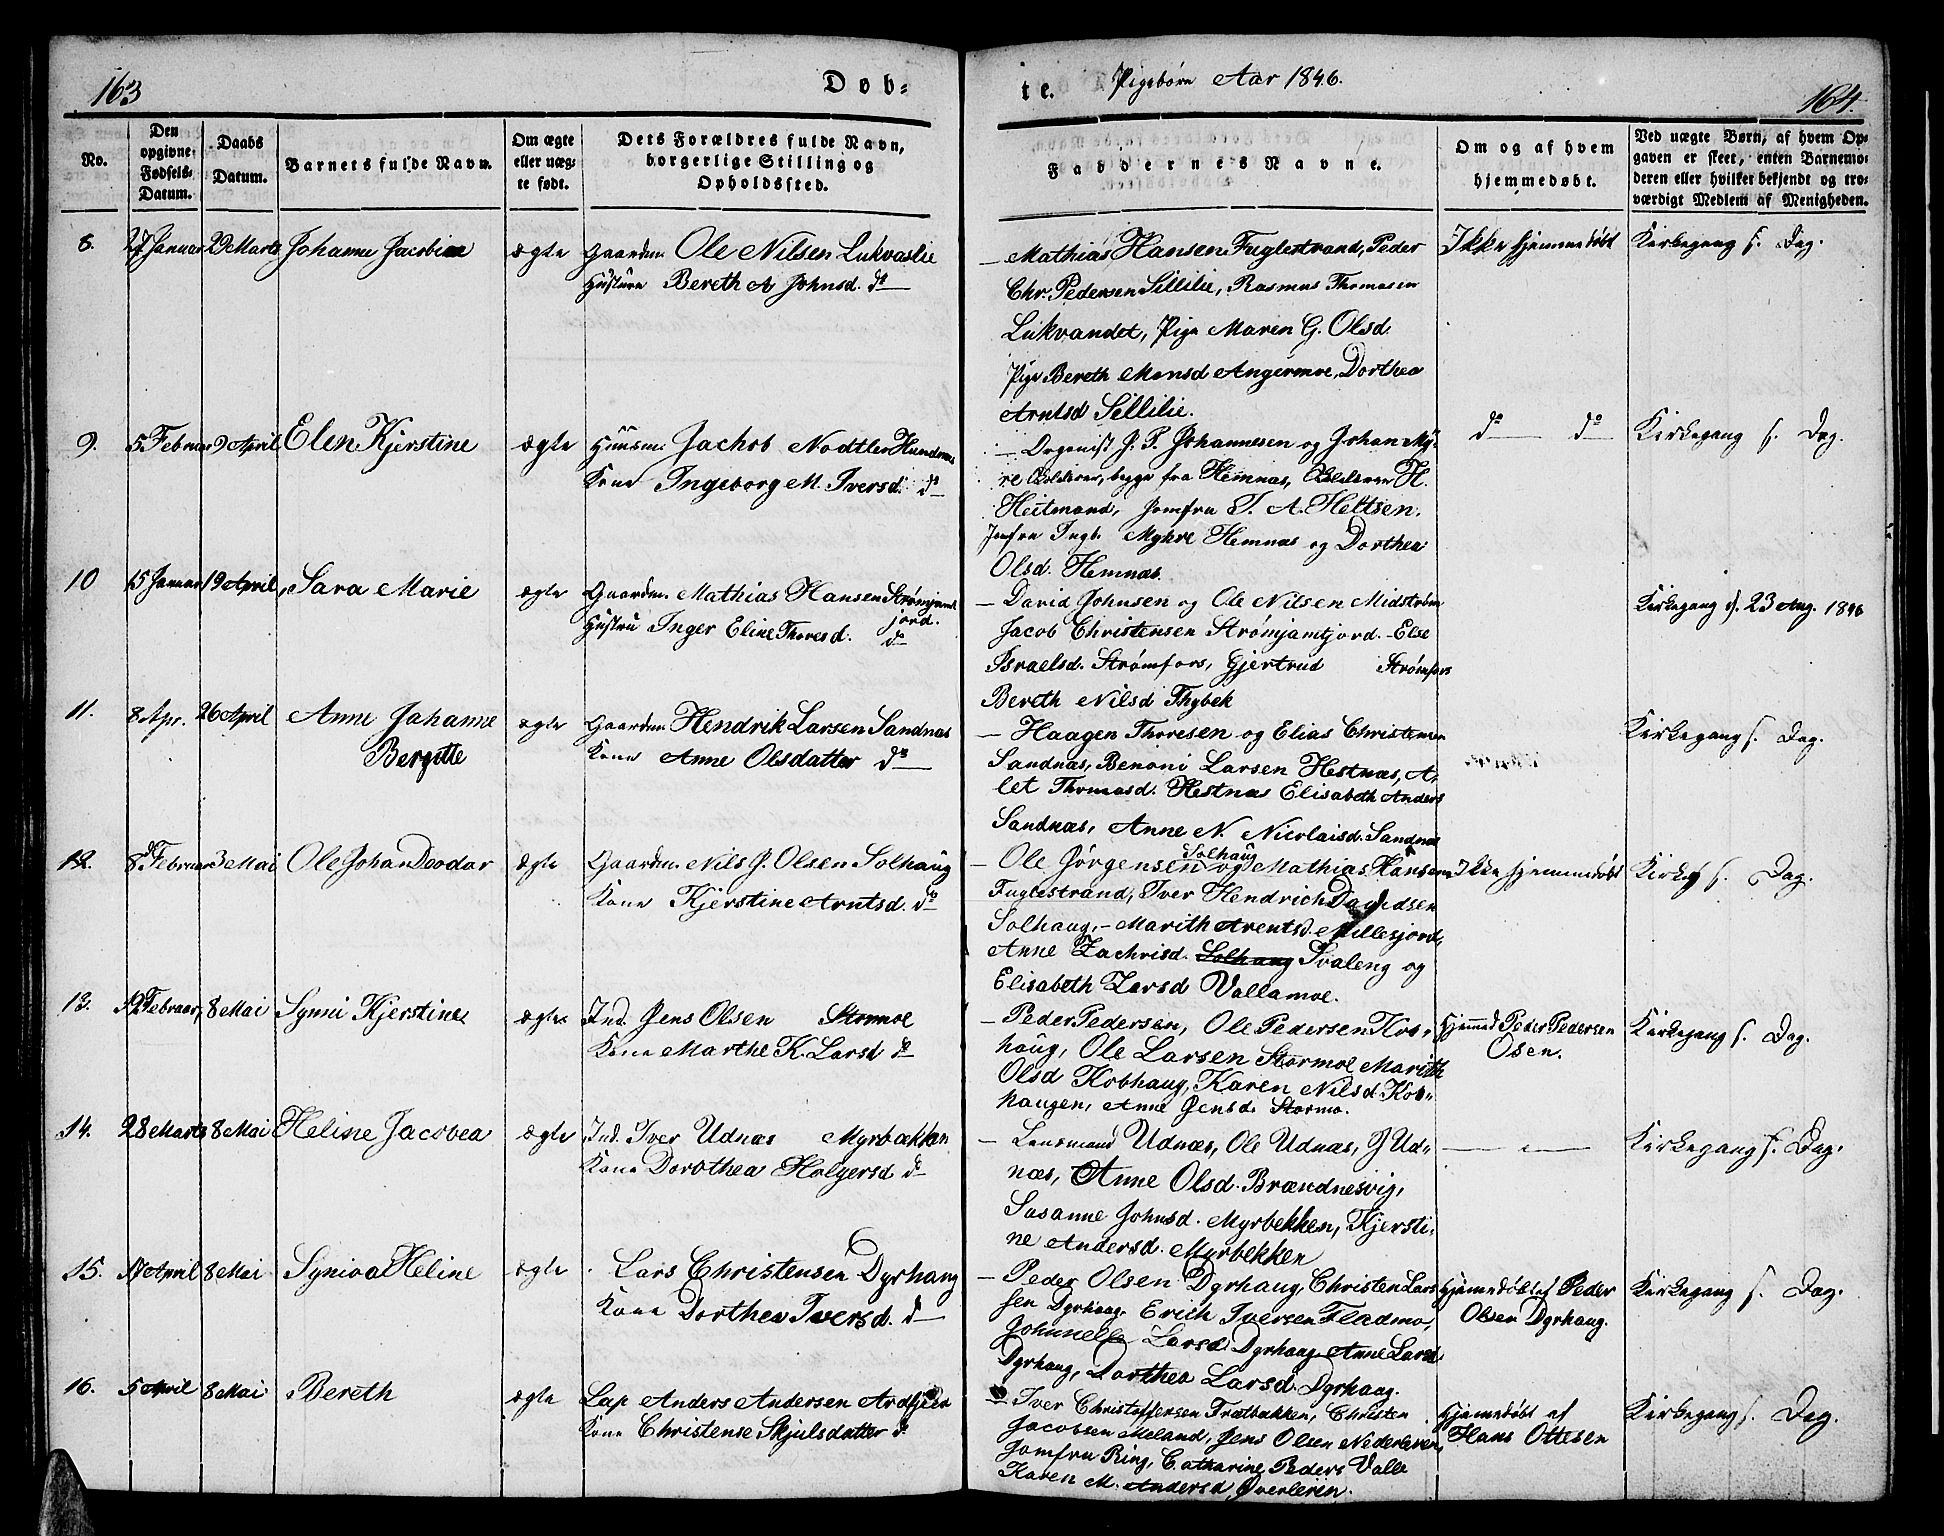 163
Døb-
te. Pigebørn Aar 1846.
164.
No.
Den opgivne Fødsels-Datum.
Daabs Datum.
Barnets fulde Navn.
Om ægte eller uæg-te født.
Dets Forældres fulde Navn, borgerlige Stilling og Opholdsted.
Faddernes Navne.
Om og af hvem hjemmedøbt.
Ved uægte Børn, af hvem Op-gaven er skeet, enten Barnemo-deren eller hvilket bekjendt og tro-værdigt Medlem af Menigheden.
8. 27 Januar 29 Marts Johanne Jacobine ægte Gaardm. Ole Nilsen Lukvaslie
Hustrue Bereth A Johnsd. do
Mathias Hansen Fuglestrand, Peder
Chr. Pedersen Sillilie, Rasmus Thomasen
Lukvandet, Pige Maren G. Olsd.
Pige Bereth Monsd Angermoe, Dorthea
Arntsd Sillilie.
Ikke hjemmedøbt
Kirkegang s. Dag.
9. 5 Februar 9 April Elen Kjerstine ægte Huusm. Jachob Nodtler Hundnes
Kone Ingeborg M. Iversd. do
Organist J. P. Johannesen og Johan My-
re, begge fra Hemnæs, H.
Heitmand, Jomfru T. A. Heltsen.
Jomfru Ingb. Myhre Hemnæs og Dorthea
Olsd. Hemnæs.
do do
Kirkegang s. Dag.
10 15 Januar 19 April, Sara Marie ægte Gaardm. Mathias Hansen Strømjamt-
jord.
Hustru Inger Eline Thoresd. do
David Johnsen og Ole Nilsen Midstrøm
Jacob Christensen Strømjamtjord. Else
Israelsd. Strømfors, Gjertrud Strømfors
Bereth Nilsd Thybek
Kirkegang d. 23 Aug. 1846
11. 8 Apr. 26 April Anne Johanne
Bergitte
ægte Gaardm Hendrik Larsen Sandnæs
Kone Anne Olsdatter do
Haagen Thoresen og Elias Christensen
Sandnæs, Benoni Larsen Hestnæs, A-
let Thomasd. Hestnæs Elisabeth Anders
Sandnæs, Anne N. Nicolaisd. Sandnæs
Kirkegang s. Dag.
12. 8 Februar 3 Mai Ole Johan Deodar ægte Gaardm. Nils J. Olsen Solhaug
Kone Kjerstine Arntsd. do
Ole Jørgensen Solhaug og Mathias Hansen
Fuglestrand, Iver Hendrich Davidsen
Solhaug, - Marith Arentsd. Millesjord,
Anne Zachrisd. Solhaug Svaleng og
Elisabeth Larsd Vallamoe.
Ikke hjemmedøbt
Kirkeg s. Dag.
13. 12 Februar, 8 Mai Synni Kjerstine ægte Ind. Jens Olsen Stormoe
Kone Marthe K. Larsd do
Peder Pedersen, Ole Pedersen Kob-
haug, Ole Larsen Stormoe Marith
Olsd Kobhaug, Karen Nilsd. Kob-
haugen, Anne Jensd. Stormo.
Hjemmed Peder Pedersen
Osen.
Kirkegang s. Dag.
14. 28 Marts 8 Mai Heline Jacobea ægte Ind. Iver Udnæs Myrbækken
Kone Dorothea Holgersd do
Lensmand Udnæs, Ole Udnæs, J Ud-
næs, Anne Olsd. Brændnesvig,
Susanne Johnsd. Myrbekken, Kjersti-
ne Andersd. Myrbekken
Kirkegang s. Dag.
15. 17 April 8 Mai Syniva Heline ægte Lars Christensen Dyrhaug
Kone Dorthea Iversd. do
Peder Olsen Dyrhaug Christen Lars
sen Dyrhaug, Erich Iversen Fladmo,
Johnnelle Larsd Dyrhaug, Anne Larsd.
Dyrhaug, Dorthea Larsd. Dyrhaug.
Hjemmedøbt af Peder
Olsen Dyrhaug.
Kirkegang s. Dag.
16. 5 April 8 Mai Bereth ægte Lap Anders Andersen Ardfjeld
Kone Christense Skjulsdatter do
Iver Christoffersen Trætbakken, Christen
Jacobsen Meland, Jens Olsen Nederleren,
Jomfru Ring, Catharine Peders Valle
Karen M. Andersd, Øverleren.
Hjemmedøbt af
Hans Ottesen
Kirkegang s. Dag.